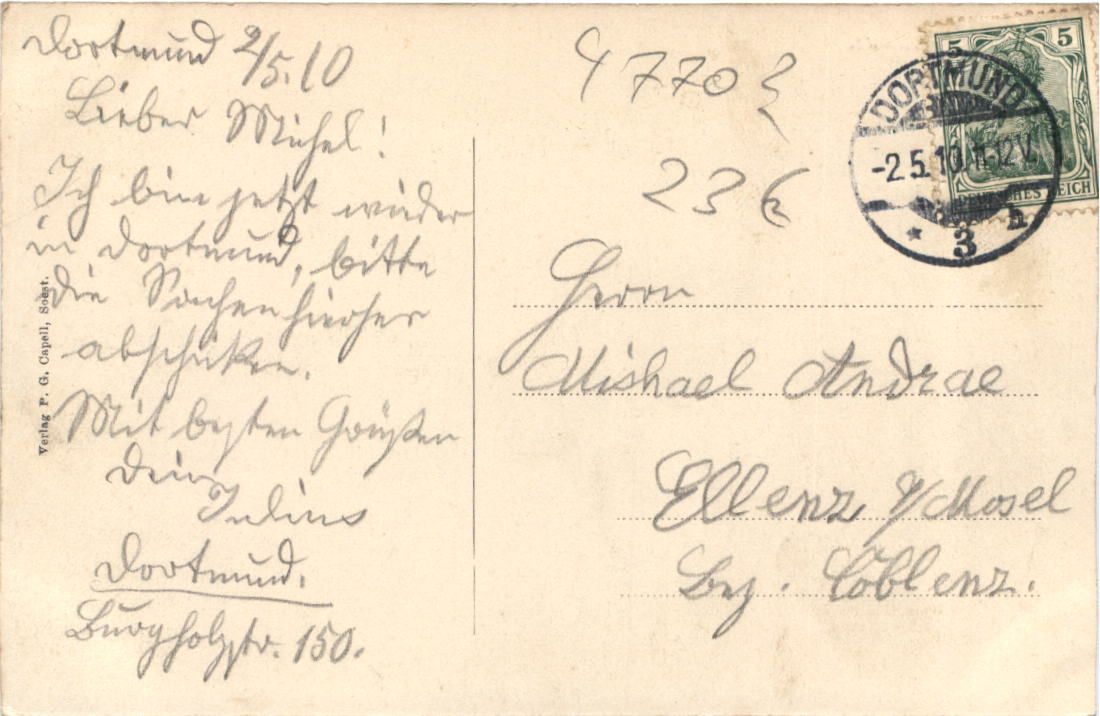 Dortmund 2/5.10
Lieber Michel!
Ich bin jetzt wieder
in Dortmund, bitte
die Sachen hierher
abschicken.
Mit besten Grüßen
Dein
Julius
Dortmund.
Burgholzstr. 150.
Verlag P. G. Capell, Soest.
47702
23 €
5 5
DEUTSCHES REICH
DORTMUND
-2.5.10. 11-12V.
* 3 h
Herrn
Mishael Andrae
Ellenz a/Mosel
Bez. Coblenz.